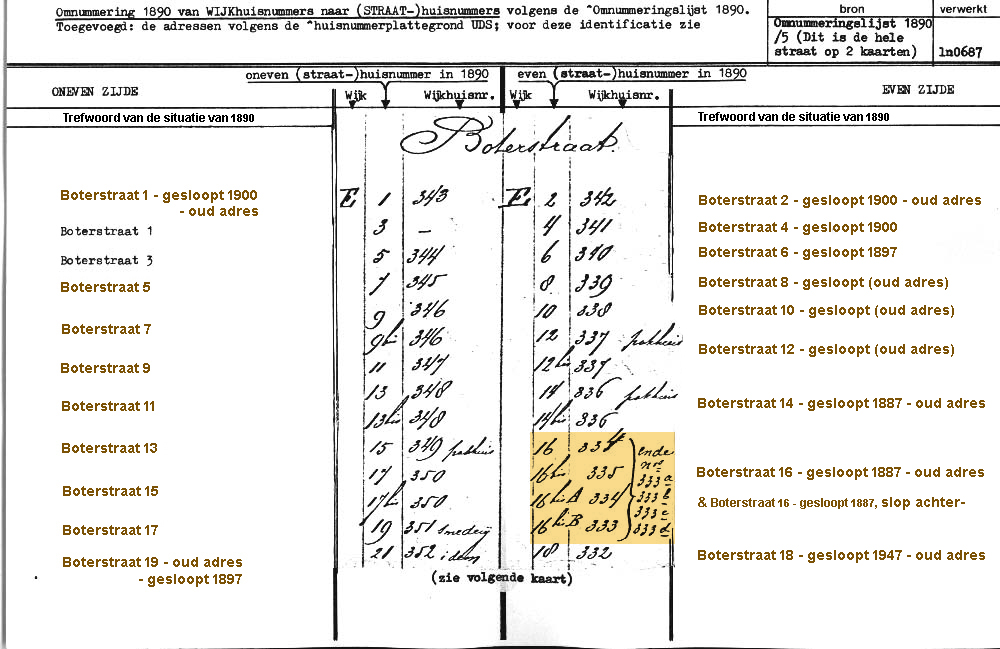 Omnummering 1890 van WIJKhuisnummers naar (STRAAT-)huisnummers volgens de ^Omnummeringslijst 1890.
Toegevoegd: de adressen volgens de ^huisnummerplattegrond UDS; voor deze identificatie zie
bron
verwerkt
Omnummeringslijst 1890
/5 (Dit is de hele
straat op 2 kaarten)
ln0687
oneven (straat-)huisnummer in 1890
even (straat-)huisnummer in 1890
ONEVEN ZIJDE
Wijk
Wijkhuisnr.
Wijk
Wijkhuisnr.
EVEN ZIJDE
Trefwoord van de situatie van 1890
Trefwoord van de situatie van 1890
Boterstraat.
Boterstraat 1 - gesloopt 1900
- oud adres
E 1 343
E 2 342
Boterstraat 2 - gesloopt 1900 - oud adres
Boterstraat 1
3 —
4 341
Boterstraat 4 - gesloopt 1900
Boterstraat 3
5 344
6 340
Boterstraat 6 - gesloopt 1897
Boterstraat 5
7 345
8 339
Boterstraat 8 - gesloopt (oud adres)
9 346
10 338
Boterstraat 10 - gesloopt (oud adres)
Boterstraat 7
9bis 346
12 337 pakhuis
Boterstraat 12 - gesloopt (oud adres)
Boterstraat 9
11 347
12bis 337
13 348
14 336 pakhuis
Boterstraat 11
13bis 348
14bis 336
Boterstraat 14 - gesloopt 1887 - oud adres
Boterstraat 13
15 349 pakhuis
16 334
ende
nrs
333a
333b
333c
333d
17 350
16bis 335
Boterstraat 16 - gesloopt 1887 - oud adres
Boterstraat 15
17bis 350
16bisA 334
& Boterstraat 16 - gesloopt 1887, slop achter-
Boterstraat 17
19 351 smederij
16bisB 333
Boterstraat 19 - oud adres
- gesloopt 1897
21 352 idem
18 332
Boterstraat 18 - gesloopt 1947 - oud adres
(zie volgende kaart)